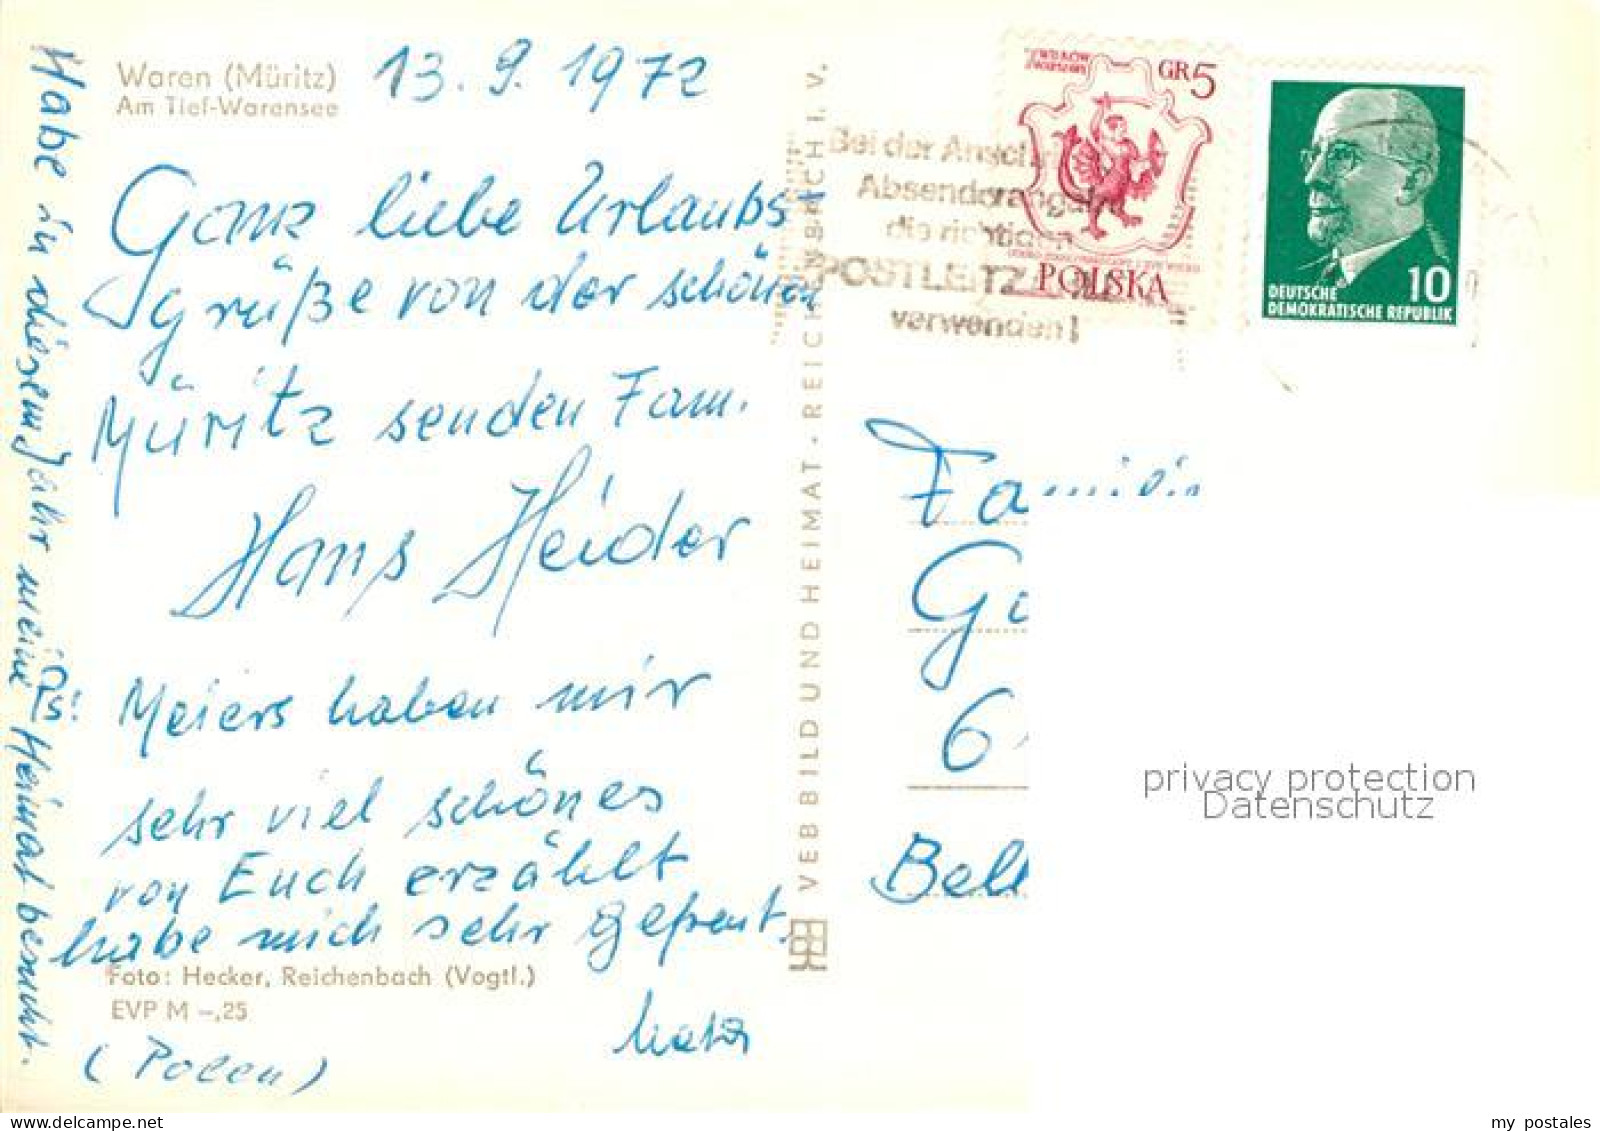 Waren (Müritz)
Am Tief-Warensee
13. 9. 1972
Ganz liebe Urlaubs-
grüße von der schönen
Müritz senden Fam.
Hans Heider
Meiers haben mir
sehr viel schönes
von Euch erzählt
habe mich sehr gefreut.
Foto: Hecker, Reichenbach (Vogtl.)
EVP M –,25
(Polen)
Habe in diesem Jahr meine Heimat besucht.
VEB BILD UND HEIMAT · REICHENBACH I. V.
Bei der Anschrift
Absenderangabe
die richtigen
POSTLEITZAHL
verwenden!
GR 5
POLSKA
10
DEUTSCHE
DEMOKRATISCHE REPUBLIK
Famili
G
6
Bell
privacy protection
Datenschutz
delcampe.net
my_postales